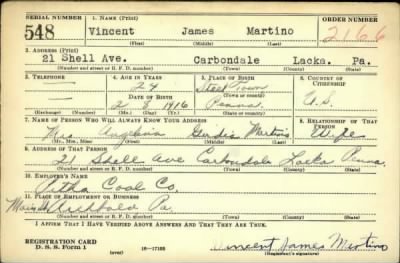 SERIAL NUMBER 1. NAME (Print) ORDER NUMBER
548 Vincent James Martino 2166
(First) (Middle) (Last)
2. ADDRESS (Print)
21 Shell Ave. Carbondale Lacka. Pa.
(Number and street or R. F. D. number) (Town) (County) (State)
3. TELEPHONE 4. AGE IN YEARS 5. PLACE OF BIRTH 6. COUNTRY OF CITIZENSHIP
— 24 Town
DATE OF BIRTH (Town or county)
— 2 8 1916 Penna. U.S.
(Exchange) (Number) (Mo.) (Day) (Yr.) (State or country)
7. NAME OF PERSON WHO WILL ALWAYS KNOW YOUR ADDRESS 8. RELATIONSHIP OF THAT PERSON
Mrs Angelina Martino Wife
(Mr., Mrs., Miss) (First) (Middle) (Last)
9. ADDRESS OF THAT PERSON
21 Shell Ave Carbondale Lacka Penna
(Number and street or R. F. D. number) (Town) (County) (State)
10. EMPLOYER'S NAME
Coal Co.
11. PLACE OF EMPLOYMENT OR BUSINESS
Archbald Pa.
(Number and street or R. F. D. number) (Town) (County) (State)
I AFFIRM THAT I HAVE VERIFIED ABOVE ANSWERS AND THAT THEY ARE TRUE.
REGISTRATION CARD
D. S. S. Form 1 (over) 16—17105 Vincent James Martino
(Registrant's signature)